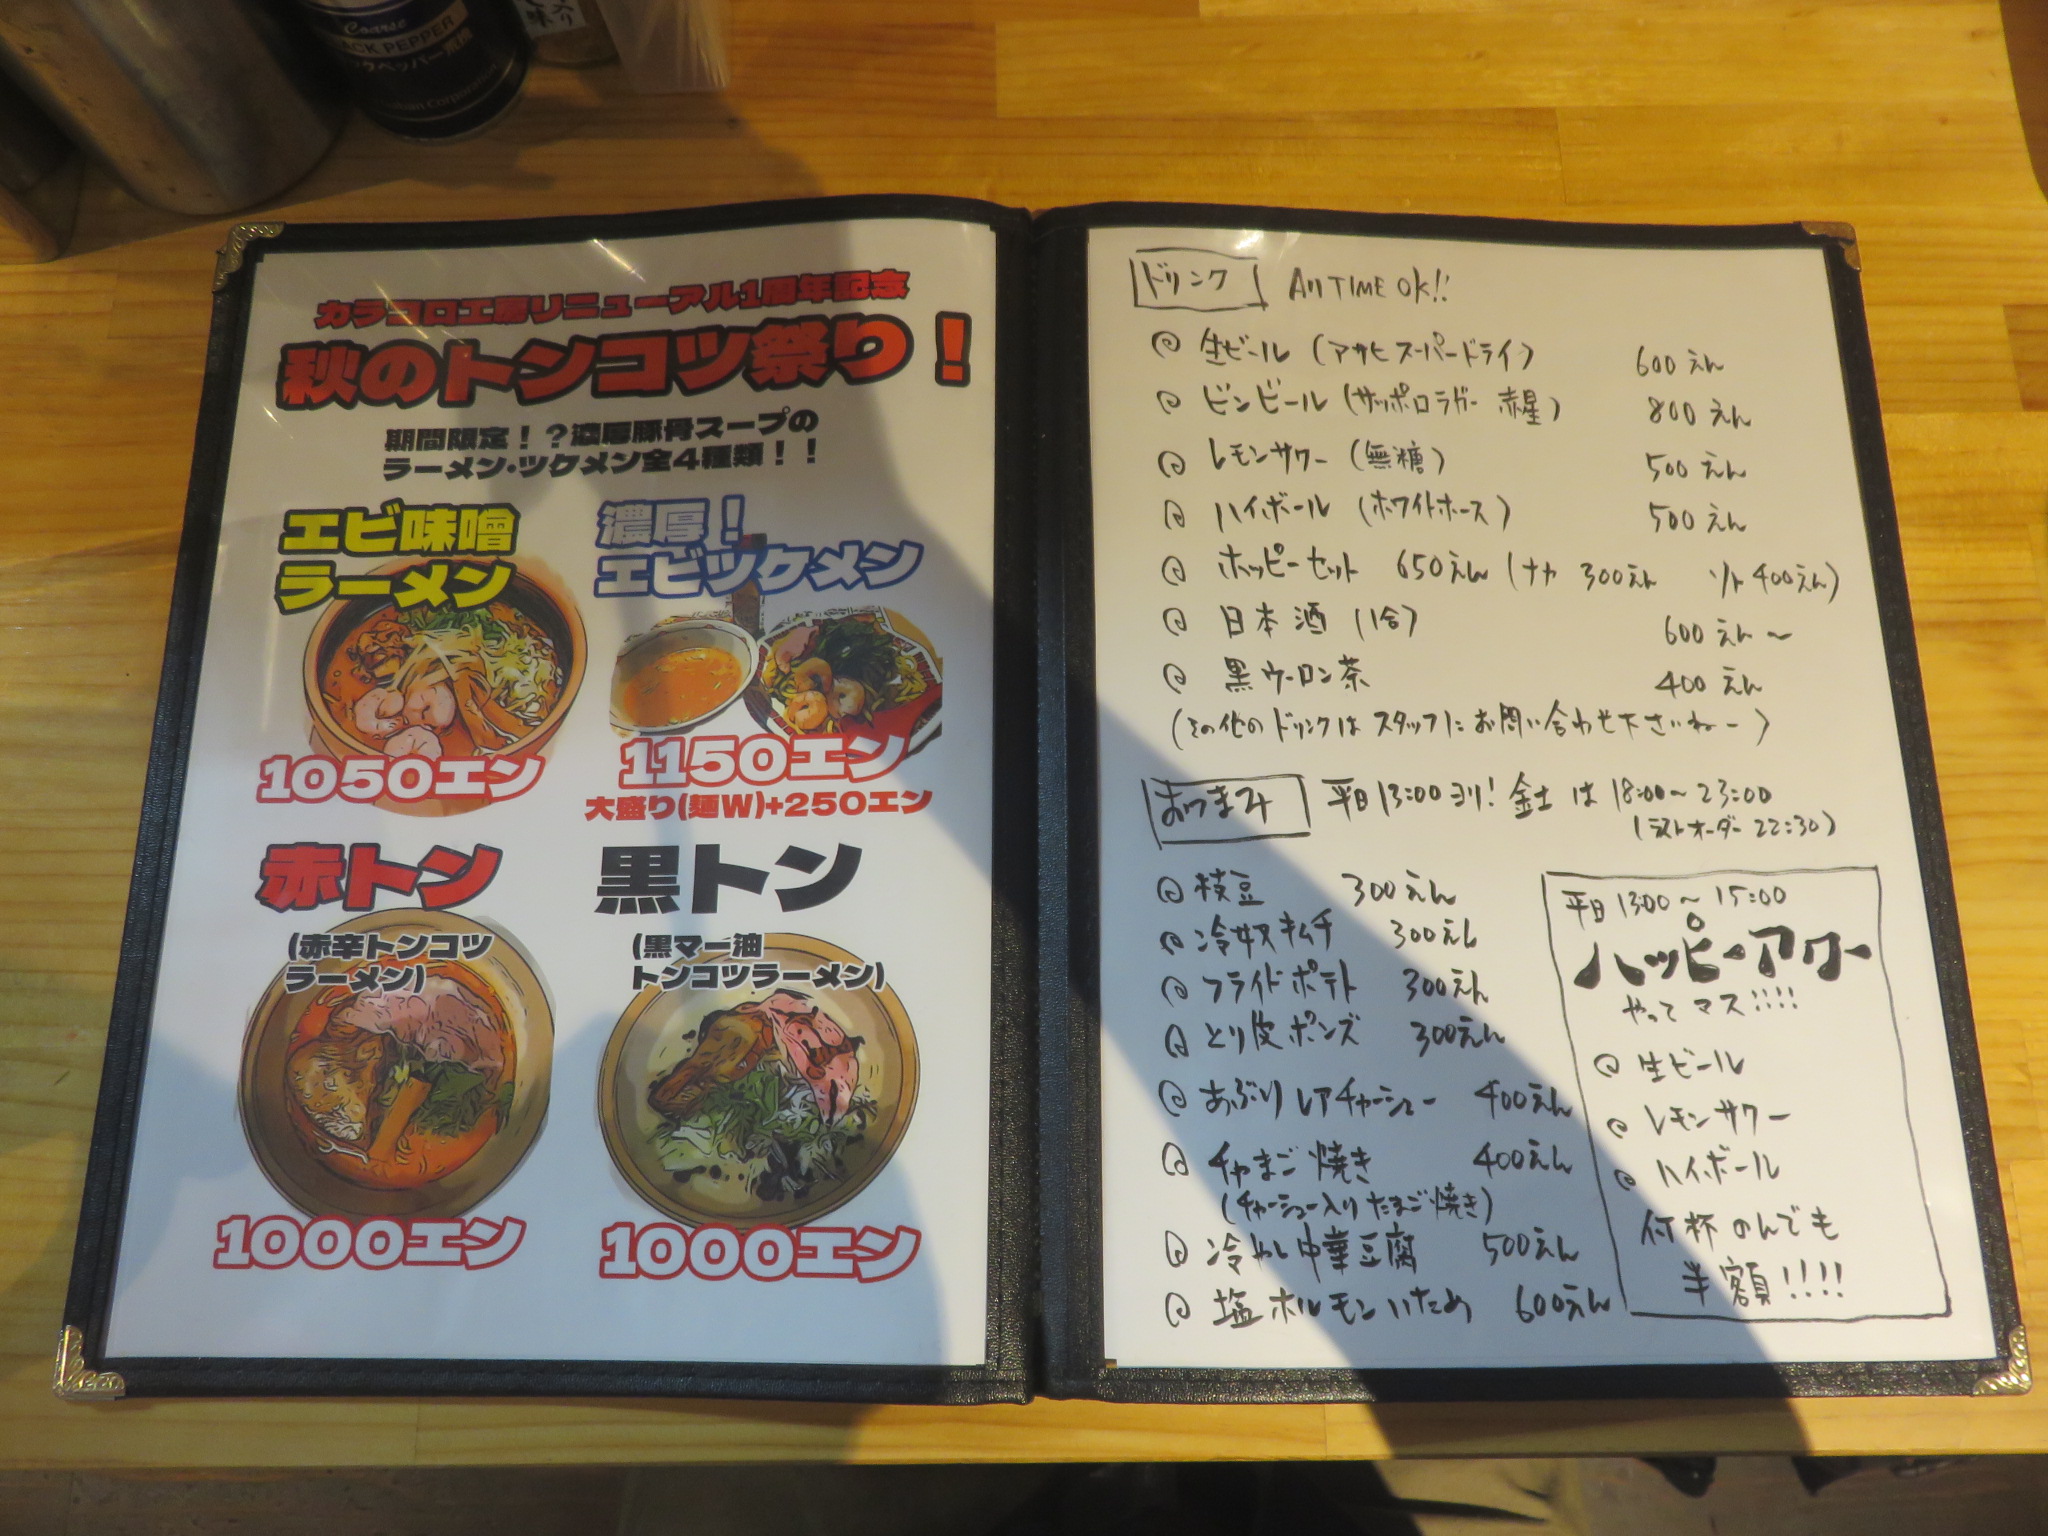 Coarse
BLACK PEPPER
カラコロ工房リニューアル1周年記念
秋のトンコツ祭り！
期間限定！？濃厚豚骨スープの
ラーメン・ツケメン全4種類！！
エビ味噌
ラーメン
1050エン
濃厚！
エビツケメン
1150エン
大盛り(麺W)+250エン
赤トン
(赤辛トンコツ
ラーメン)
1000エン
黒トン
(黒マー油
トンコツラーメン)
1000エン
ドリンク All TIME OK!!
生ビール (アサヒスーパードライ) 600えん
ビンビール (サッポロラガー 赤星) 800えん
レモンサワー (無糖) 500えん
ハイボール (ホワイトホース) 500えん
ホッピーセット 650えん (ナカ 300えん ソト 400えん)
日本酒 (1合) 600えん〜
黒ウーロン茶 400えん
(その他のドリンクはスタッフにお問い合わせ下さいねー)
おつまみ 平日13:00ヨリ! 金土は18:00〜23:00
(ラストオーダー 22:30)
枝豆 300えん
冷奴キムチ 300えん
フライドポテト 300えん
とり皮ポンズ 300えん
あぶりレアチャーシュー 400えん
チャまご焼き 400えん
(チャーシュー入りたまご焼き)
冷やし中華豆腐 500えん
塩ホルモンいため 600えん
平日13:00〜15:00
ハッピーアワー
やってマス!!!!
生ビール
レモンサワー
ハイボール
何杯のんでも
半額!!!!